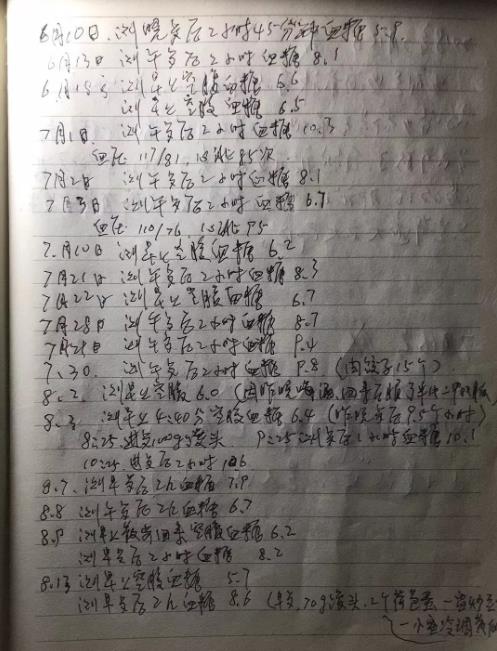 6月10日、测晚食后2小时45分钟血糖5.9.
6月13日 测午食后2小时血糖 8.1
6月15号 测早上空腹血糖 6.6
测早上空腹血糖 6.5
7月1日. 测午食后2小时血糖 10.3
血压 117/81, 心跳85次.
7月2日 测午食后2小时血糖 8.1
7月3日 测午食后2小时血糖 6.7
血压 110/76 心跳95
7.月10日 测早上空腹血糖 6.2
7月21日 测午食后2小时血糖 8.3
7月22日 测早上空腹血糖 6.7
7月28日 测午食后2小时血糖 8.7
测午食后2小时血糖 9.4
7.30. 测午食后2小时血糖 9.8 (肉饺子15个)
8.2. 测早上空腹 6.0 (因昨晚
测早上4:40分空腹血糖 6.4 (昨晚食后9.5个小时)
8:25进食100g馒头 9:25测食后1小时血糖 10.1
10:25进食后2小时
8.7. 测早食后2h血糖 7.9
8.8 测午食后2h血糖 6.7
8.9 测早上散步回来空腹血糖 6.2
测早食后2小时血糖 8.2
8.13 测早上空腹血糖 5.7
测早食后2h血糖 8.6 (早食.70g馒头.2个荷包蛋.一